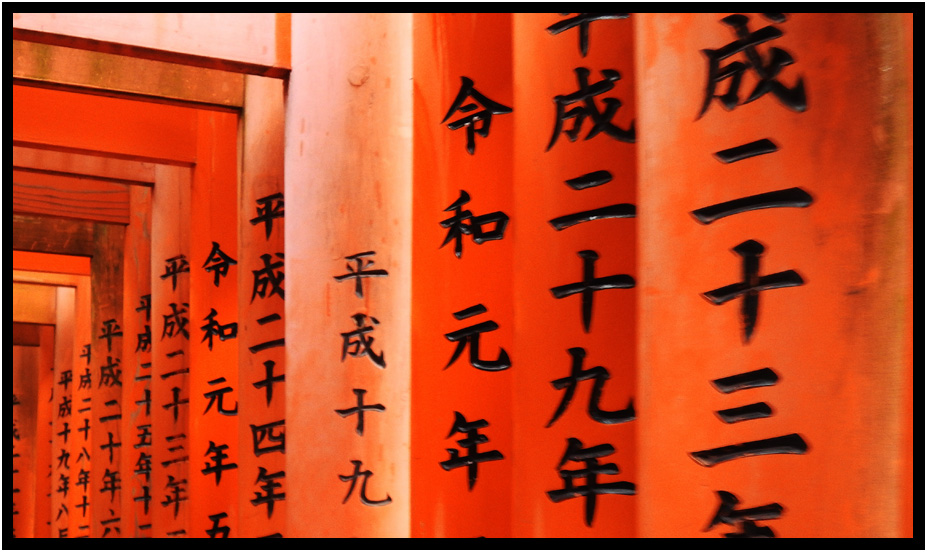 成二十三年
平成二十九年
令和元年
平成十九
平成二十四年
令和元年五
平成二十三年
平成二十五年十
平成二十年六
平成二十八年十
平成十九年八